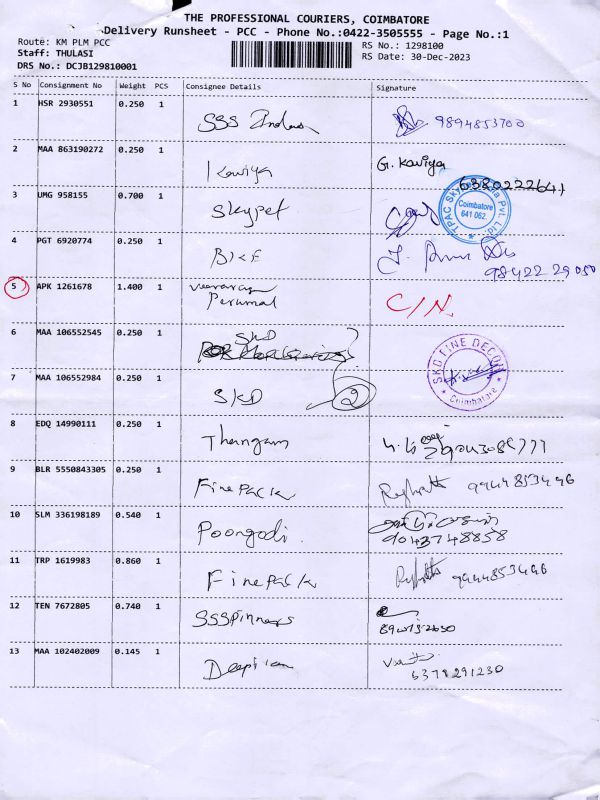 THE PROFESSIONAL COURIERS, COIMBATORE
Delivery Runsheet - PCC - Phone No.:0422-3505555 - Page No.:1
Route: KM PLM PCC
RS No.: 1298100
Staff: THULASI
RS Date: 30-Dec-2023
DRS No.: DCJB129810001
S No Consignment No Weight PCS Consignee Details Signature
1 HSR 2930551 0.250 1 SSS 9894853700
2 MAA 863190272 0.250 1 Kaviya G. Kaviya
6380222641
3 UMG 958155 0.700 1 Skypet
Coimbatore
641 062.
4 PGT 6920774 0.250 1
98422 29050
5 APK 1261678 1.400 1 Perumal C/N.
6 MAA 106552545 0.250 1 SKD
SKD FINE DECOR
Coimbatore
7 MAA 106552984 0.250 1 SKD 2
8 EDQ 14990111 0.250 1 Thangam
9 BLR 5550843305 0.250 1 Finepack 9944853496
10 SLM 336198189 0.540 1 Poongodi.
9043748858
11 TRP 1619983 0.860 1 Finepack 9944853496
12 TEN 7672805 0.740 1 SSSpinners
13 MAA 102402009 0.145 1
6378291230